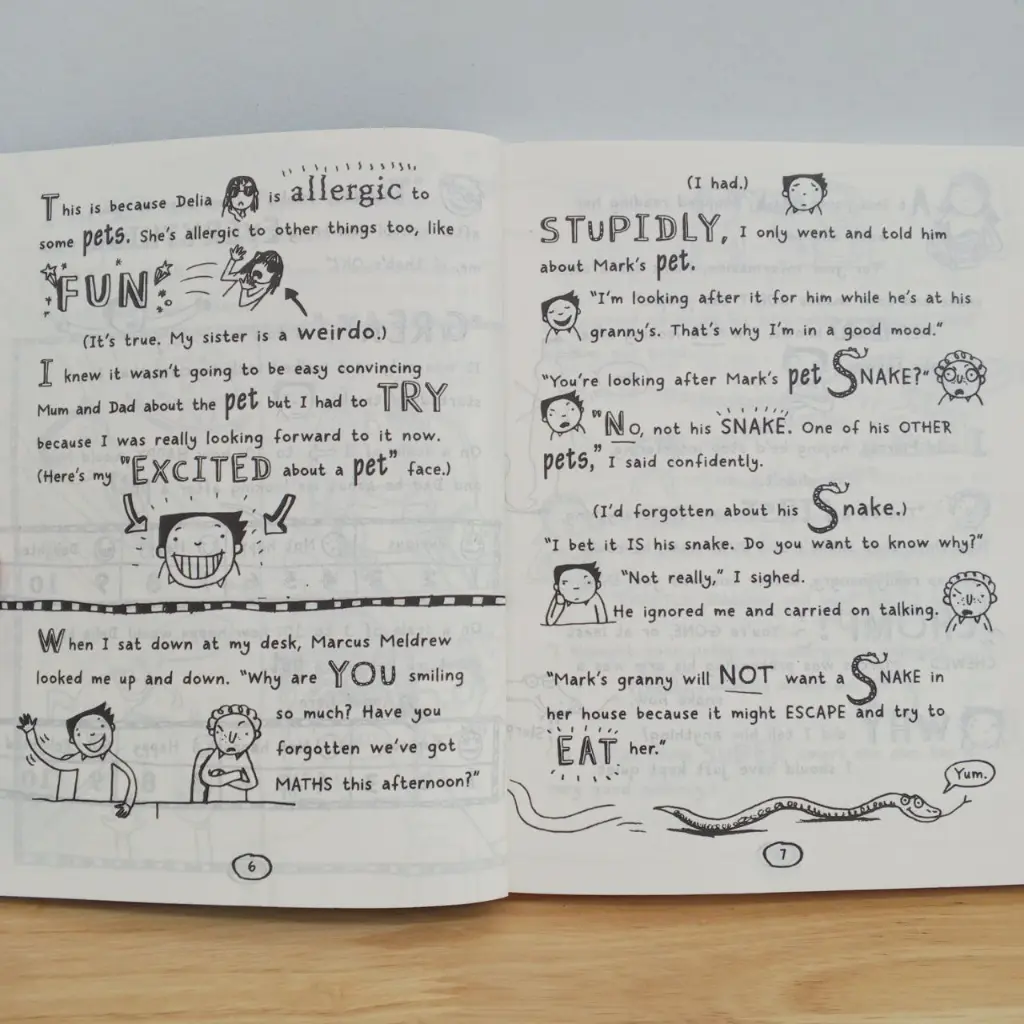 This is because Delia is allergic to
some pets. She's allergic to other things too, like
FUN
(It's true. My sister is a weirdo.)
I knew it wasn't going to be easy convincing
Mum and Dad about the pet but I had to TRY
because I was really looking forward to it now.
(Here's my "EXCITED about a pet" face.)
When I sat down at my desk, Marcus Meldrew
looked me up and down. "Why are YOU smiling
so much? Have you
forgotten we've got
MATHS this afternoon?"
6
(I had.)
STUPIDLY, I only went and told him
about Mark's pet.
"I'm looking after it for him while he's at his
granny's. That's why I'm in a good mood."
"You're looking after Mark's pet SNAKE?"
"No, not his SNAKE. One of his OTHER
pets," I said confidently.
(I'd forgotten about his Snake.)
"I bet it IS his snake. Do you want to know why?"
"Not really," I sighed.
He ignored me and carried on talking.
"Mark's granny will NOT want a SNAKE in
her house because it might ESCAPE and try to
EAT her."
Yum.
7